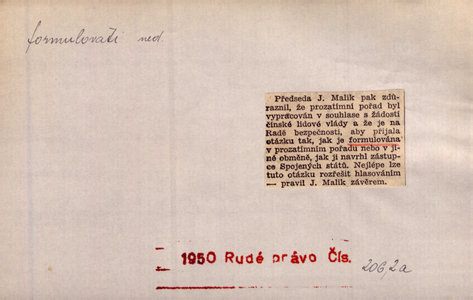 formulovati ned.
Předseda J. Malik pak zdů-
raznil, že prozatímní pořad byl
vypracován v souhlase s žádostí
čínské lidové vlády a že je na
Radě bezpečnosti, aby přijala
otázku tak, jak je formulována
v prozatímním pořadu nebo v ji-
né obměně, jak ji navrhl zástup-
ce Spojených států. Nejlépe lze
tuto otázku rozřešit hlasováním
— pravil J. Malik závěrem.
1950 Rudé právo Čís. 206,2a